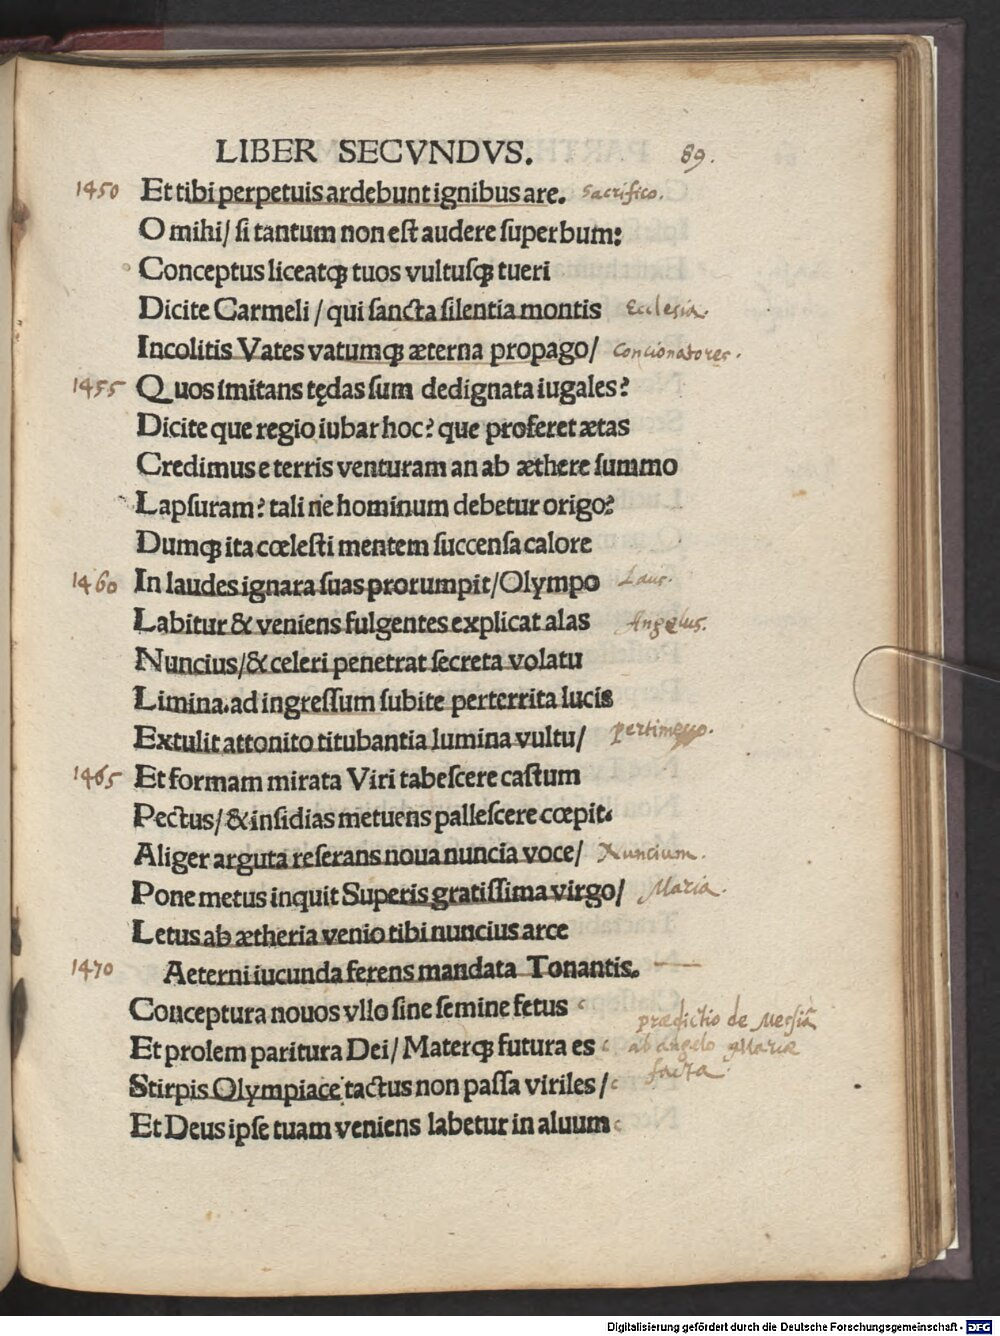 LIBER SECVNDVS. 89.
1450 Et tibi perpetuis ardebunt ignibus are. Sacrifico.
O mihi/ si tantum non est audere superbum:
Conceptus liceatqꝫ tuos vultusqꝫ tueri
Dicite Carmeli / qui sancta silentia montis Ecclesia.
Incolitis Vates vatumqꝫ æterna propago/ Concionatores.
1455 Quos imitans tędas sum dedignata iugales?
Dicite que regio iubar hoc? que proferet ætas
Credimus e terris venturam an ab æthere summo
Lapsuram? tali ne hominum debetur origo?
Dumqꝫ ita cœlesti mentem succensa calore
1460 In laudes ignara suas prorumpit/Olympo Laus.
Labitur & veniens fulgentes explicat alas Angelus.
Nuncius/& celeri penetrat secreta volatu
Limina. ad ingressum subite perterrita lucis
Extulit attonito titubantia lumina vultu/ pertimesco.
1465 Et formam mirata Viri tabescere castum
Pectus/ & insidias metuens pallescere cœpit.
Aliger arguta reserans noua nuncia voce/ Nuncium.
Pone metus inquit Superis gratissima virgo/ Maria.
Letus ab ætheria venio tibi nuncius arce
1470 Aeterni iucunda ferens mandata Tonantis.
Conceptura nouos vllo sine semine fetus
Et prolem paritura Dei/ Materqꝫ futura es
Stirpis Olympiace tactus non passa viriles /
Et Deus ipse tuam veniens labetur in aluum
prædictio de Messia
ab angelo Mariæ
facta
Digitalisierung gefördert durch die Deutsche Forschungsgemeinschaft - DFG